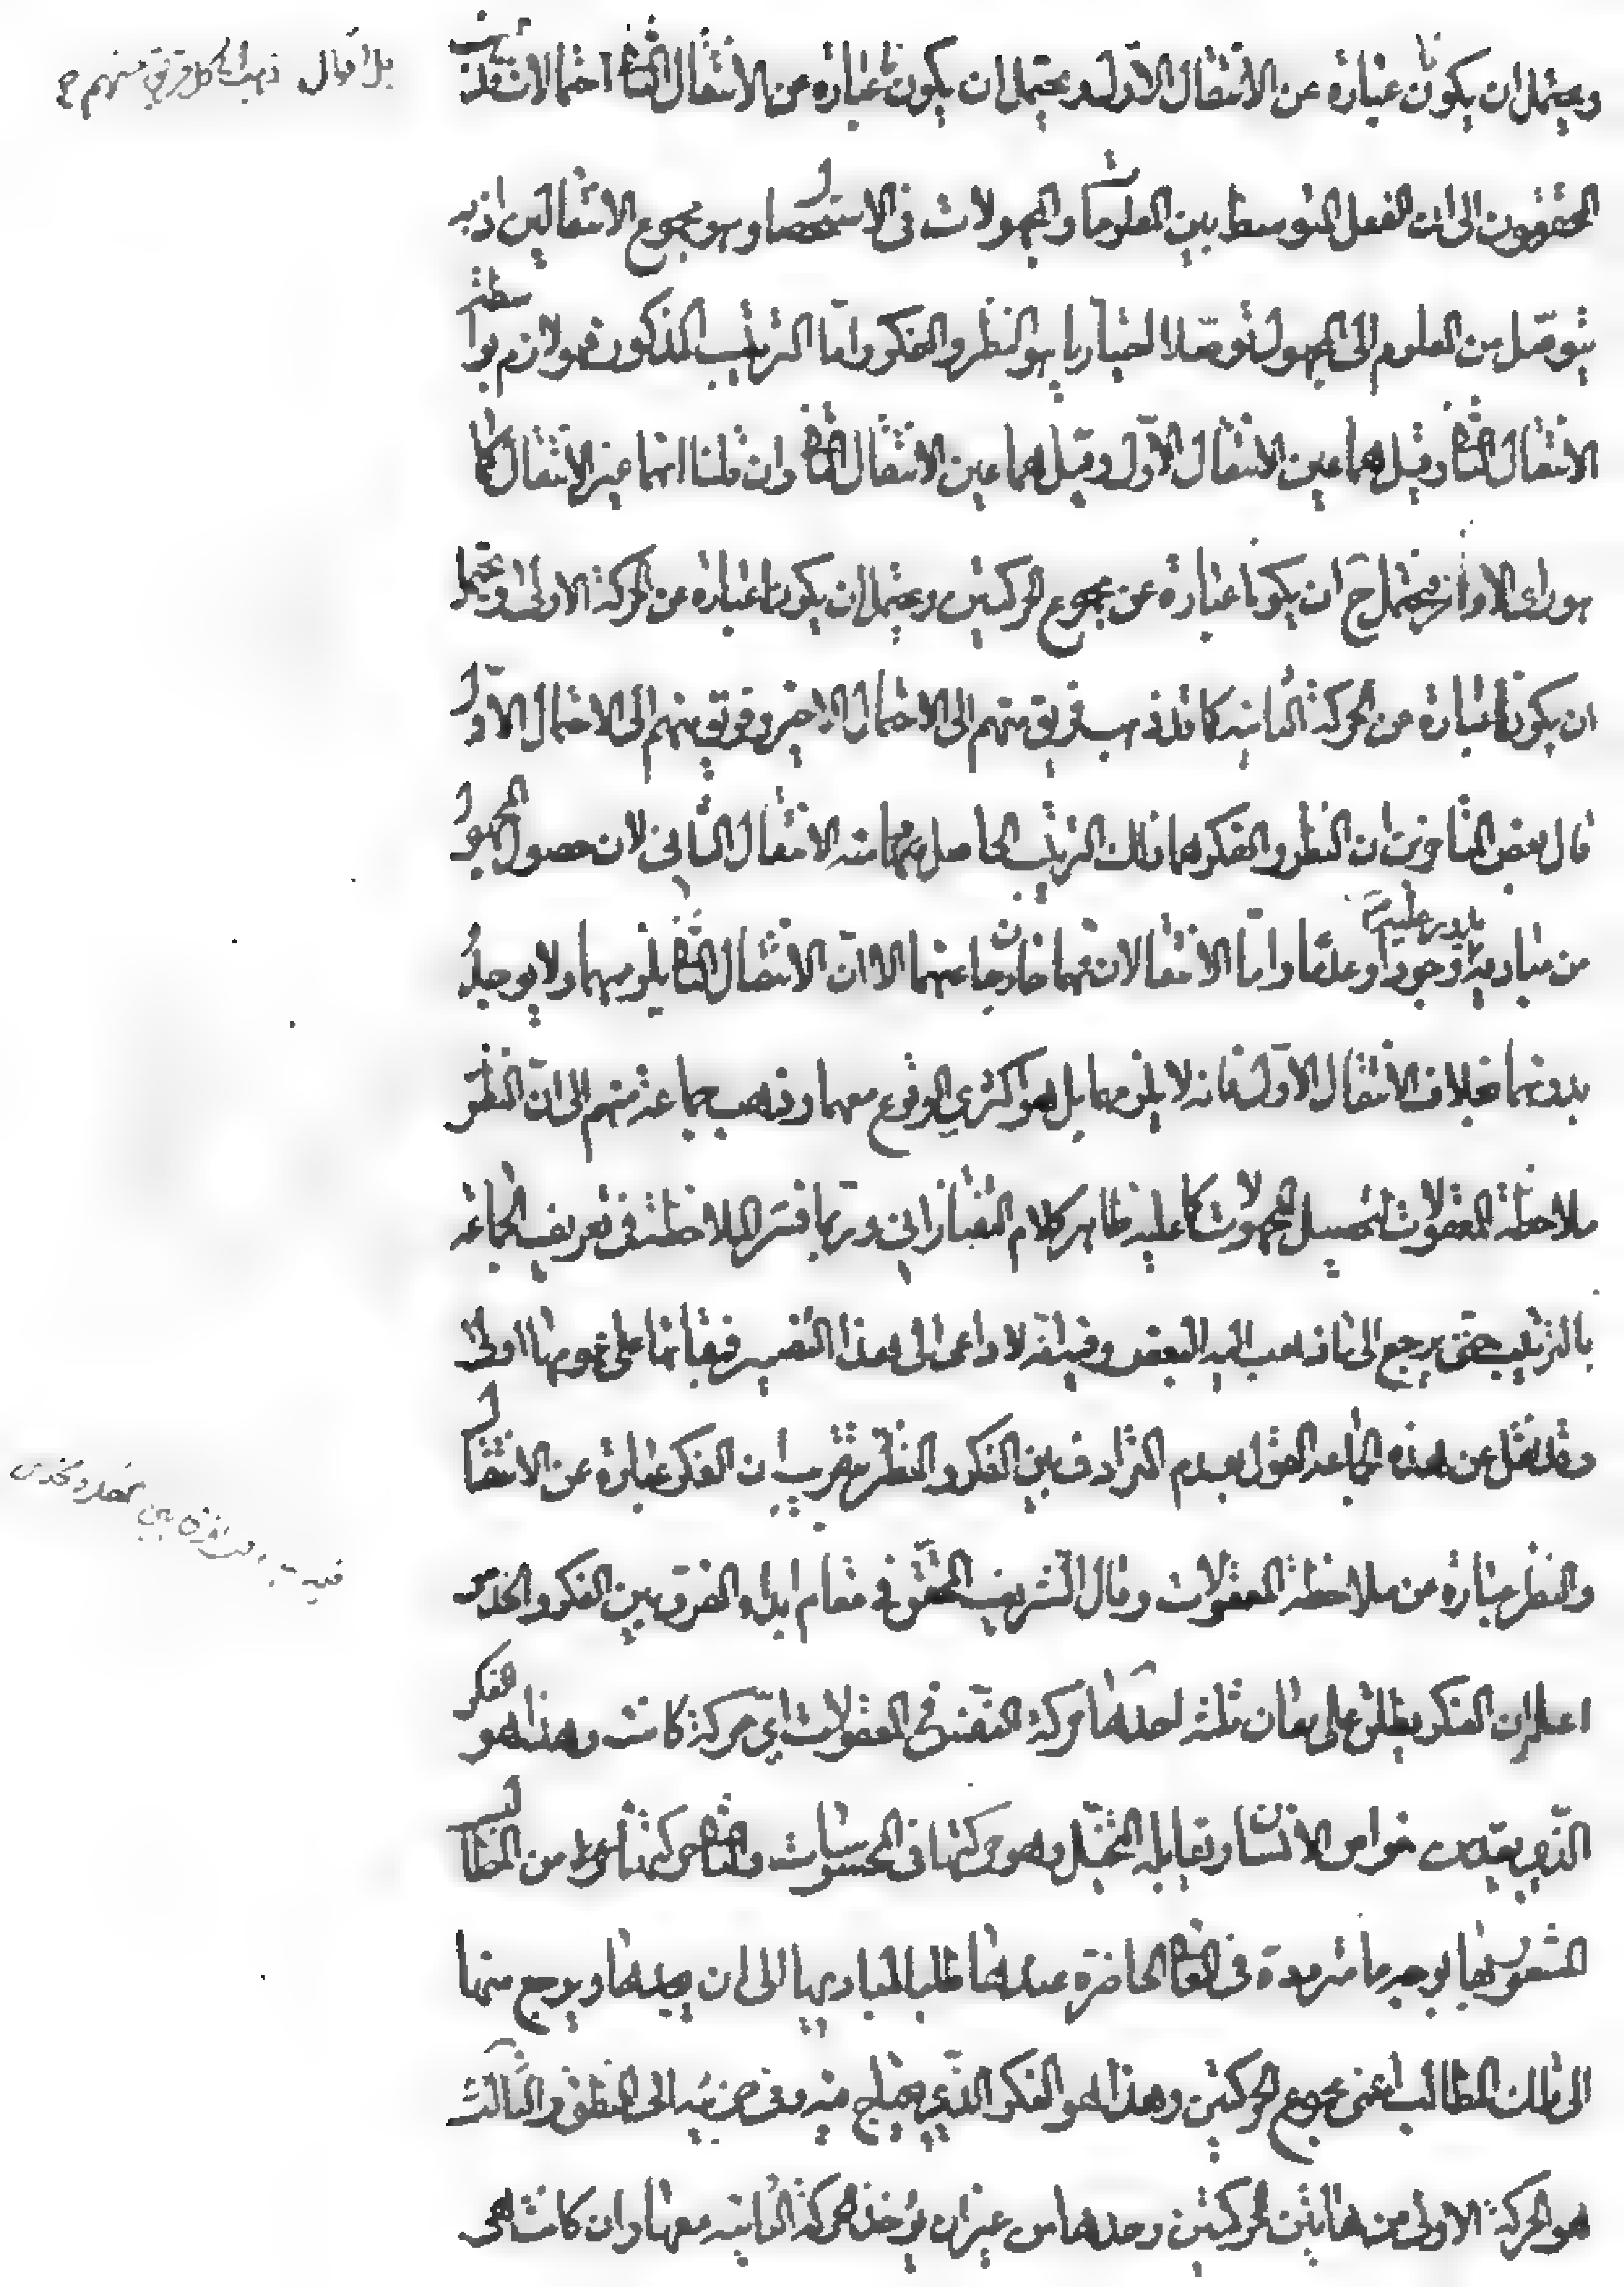 ويحتمل ان يكونا عبارة عن الانتقال الاول ويحتمل ان يكونا عبارة عن الانتقال الثاني احتمالات فذهب
بل اقوال ذهب الى كل فريق منهم ح
المحققون الى ان الفعل المتوسط بين المعلومات والمجهولات في الاستحصال وهو مجموع الانتقالين اذ به
يتوصل من المعلوم الى المجهول توصلا اختياريا هو النظر والفكر واما الترتيب المذكور فهو لازم بواسطة
الانتقال الثاني وقيل هما عين الانتقال الاول وقيل هما عين الانتقال الثاني وان قلنا انهما غير الانتقال كما
هو راى الاواخر فيحتمل ح ان يكونا عبارة عن مجموع الحركتين ويحتمل ان يكونا عبارة عن الحركة الاولى ويحتمل
ان يكونا عبارة عن الحركة الثانية كما قد ذهب فريق منهم الى الاحتمال الاخير وفريق منهم الى الاحتمال الاول
قال بعض المتاخرين ان النظر والفكر هما ذلك الترتيب الحاصل منه الانتقال الثاني لان حصول المجهول
من مباديه يدور عليه وجودا وعدما واما الانتقالان فهما خارجان عنهما الا ان الانتقال الثاني يلزمهما ولا يوجد
بدونهما بخلاف الانتقال الاول فانه لا يلزمهما بل هو اكثري الوقوع معهما وذهب جماعة منهم الى ان النظر
ملاحظة المعقولات لتحصيل المجهولات كما عليه ظاهر كلام التفتازاني وربما فسر الملاحظة في تعريف الجماعة
بالترتيب حتى يرجع الى ما ذهب اليه البعض وفيه انه لا داعي الى هذا التفسير فبقائها على عمومها اولى
وقد نقل عن هذه الجماعة القول بعدم الترادف بين الفكر والنظر بتقريب ان الفكر عبارة عن الانتقال
والنظر عبارة عن ملاحظة المعقولات وقال الشريف المحقق في مقام ابداء الفرق بين الفكر والحدس
اعلم ان الفكر يطلق على معان ثلثة احدها حركة النفس في المعقولات اي حركة كانت وهذا هو الفكر
الذي يعد من خواص الانسان ويقابله التخيل وهو حركتها في المحسوسات والثاني حركتها من المطالب
المشعور بها بوجه ما مترددة في المعاني الحاضرة عندها طلبا لمباديها الى ان يجدها ويرجع منها
الى تلك المطالب اعني مجموع الحركتين وهذا هو الفكر الذي يحتاج فيه وفي جزئيه الى المنطق والثالث
هو الحركة الاولى من هاتين الحركتين وحدها من غير ان يوخذ الحركة الثانية معها وان كانت هي